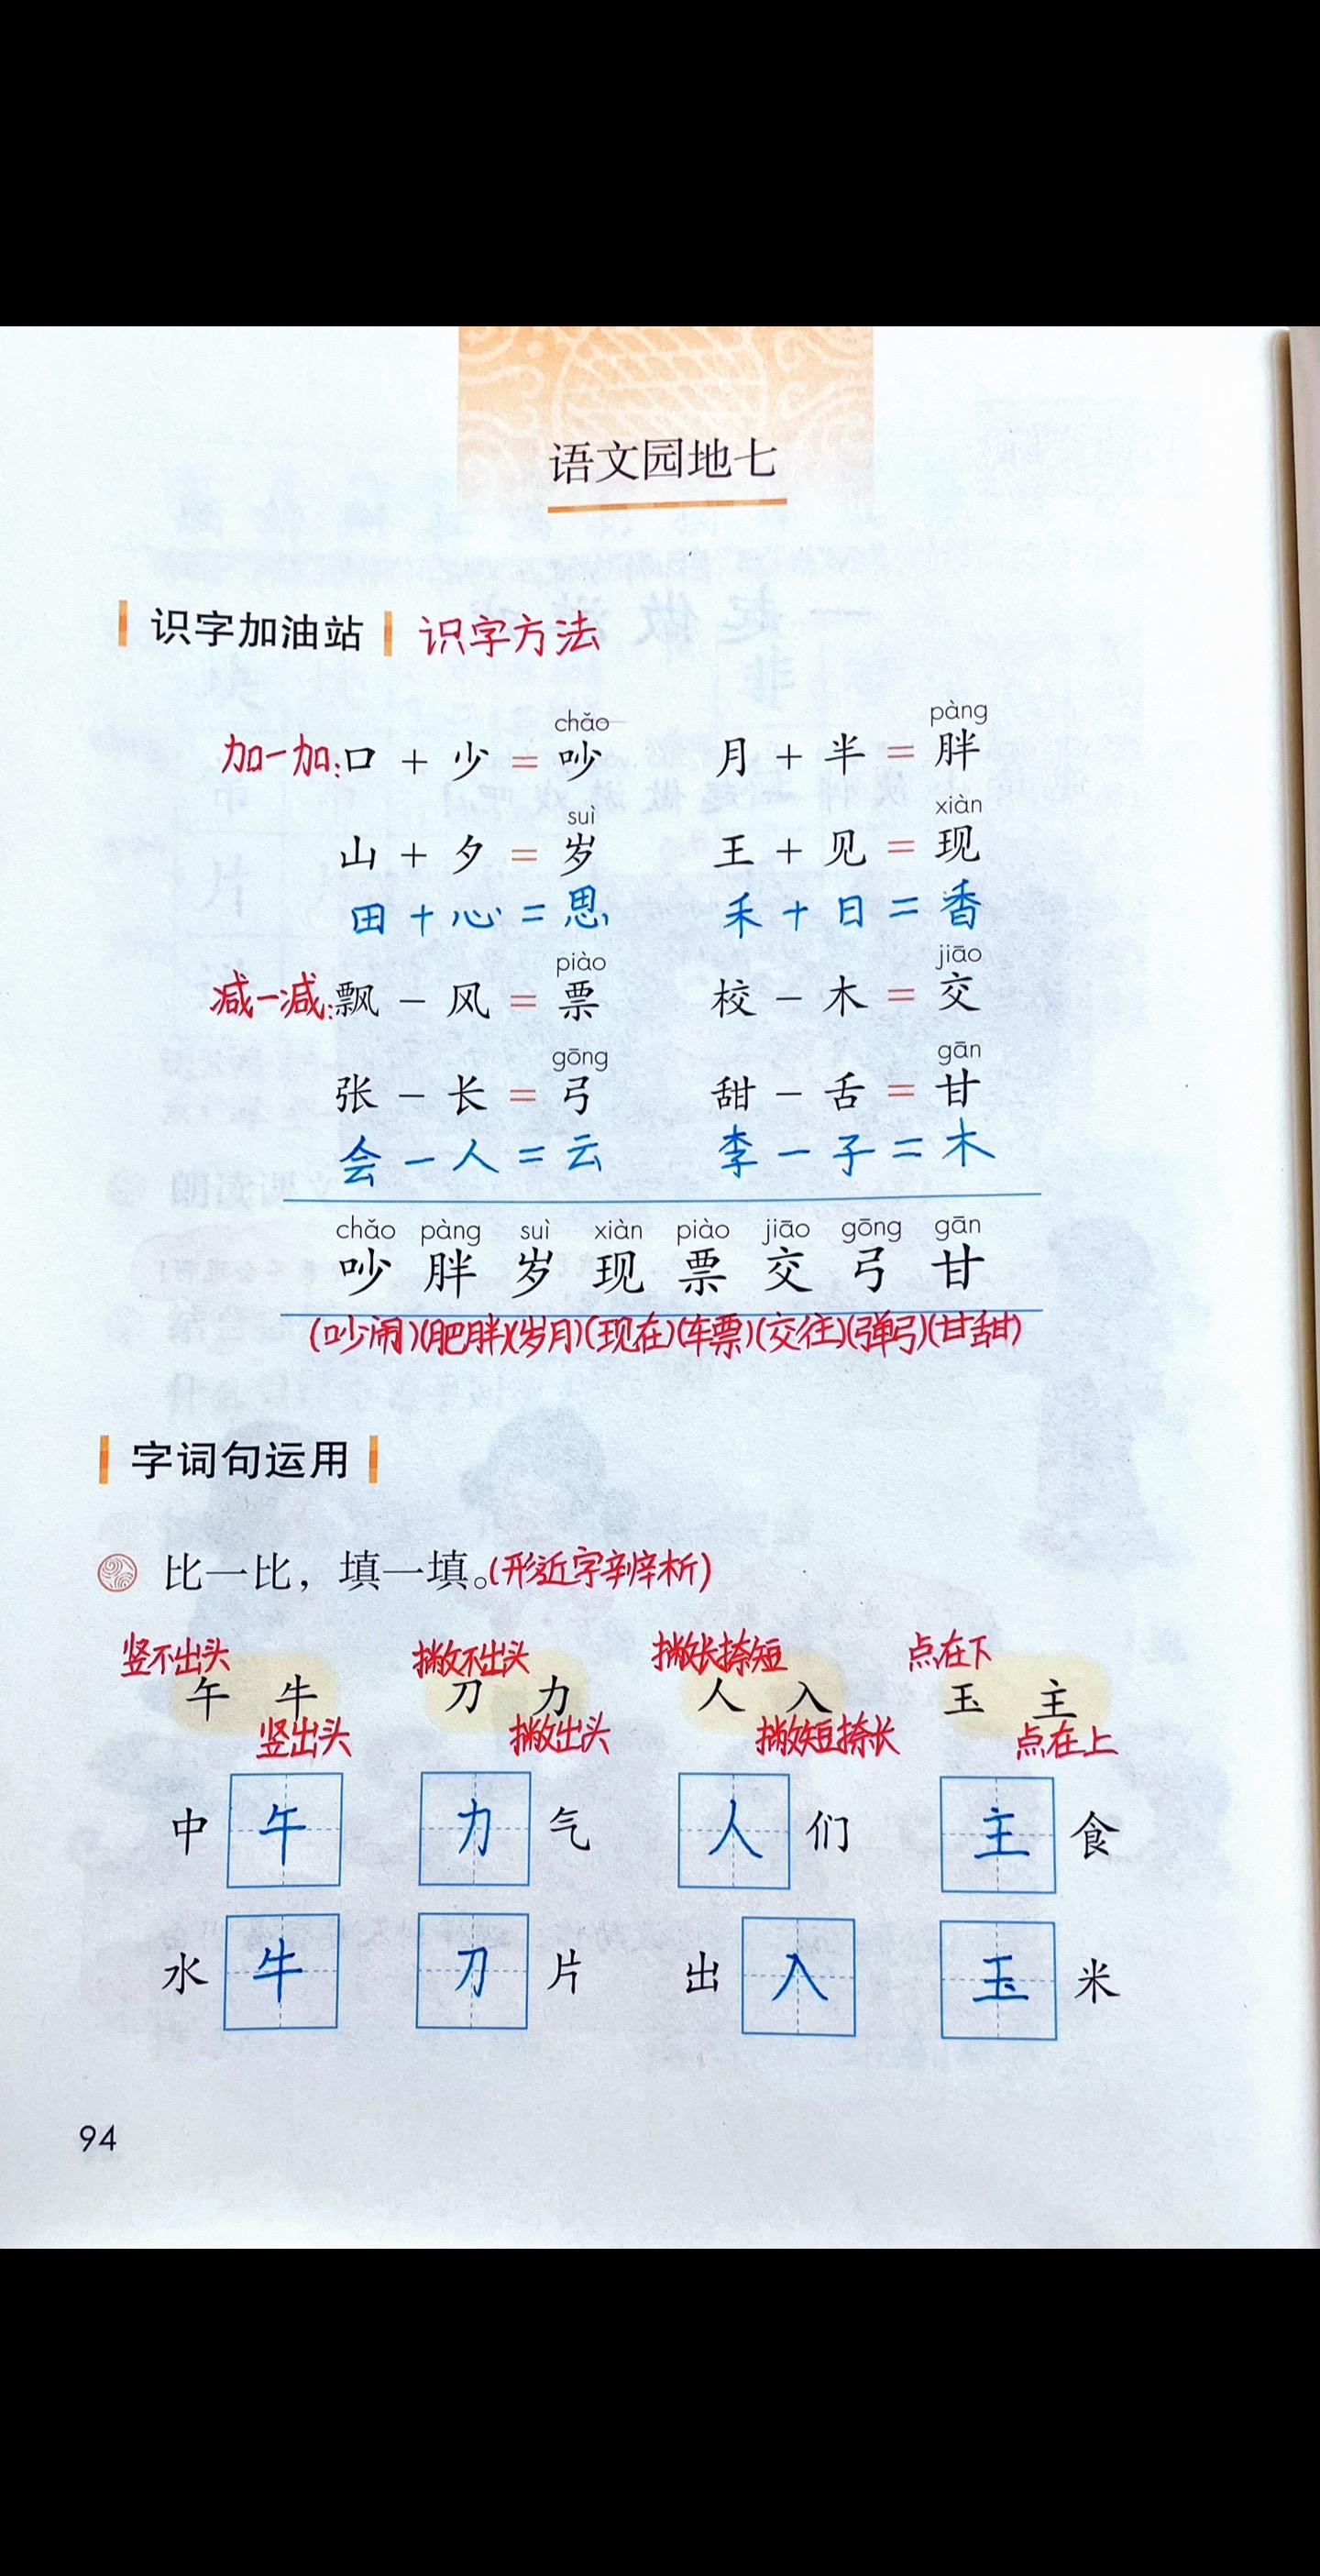 语文园地七
识字加油站 识字方法
chǎo pàng
加一加:口 + 少 = 吵 月 + 半 = 胖
suì xiàn
山 + 夕 = 岁 王 + 见 = 现
田 + 心 = 思 禾 + 日 = 香
piào jiāo
减一减:飘 − 风 = 票 校 − 木 = 交
gōng gān
张 − 长 = 弓 甜 − 舌 = 甘
会 − 人 = 云 李 − 子 = 木
chǎo pàng suì xiàn piào jiāo gōng gān
吵 胖 岁 现 票 交 弓 甘
(吵闹)(肥胖)(岁月)(现在)(车票)(交往)(弹弓)(甘甜)
字词句运用
比一比，填一填。(形近字辨析)
竖不出头 撇不出头 撇长捺短 点在下
午 牛 刀 力 人 入 玉 主
竖出头 撇出头 撇短捺长 点在上
中 午 力 气 人 们 主 食
水 牛 刀 片 出 入 玉 米
94